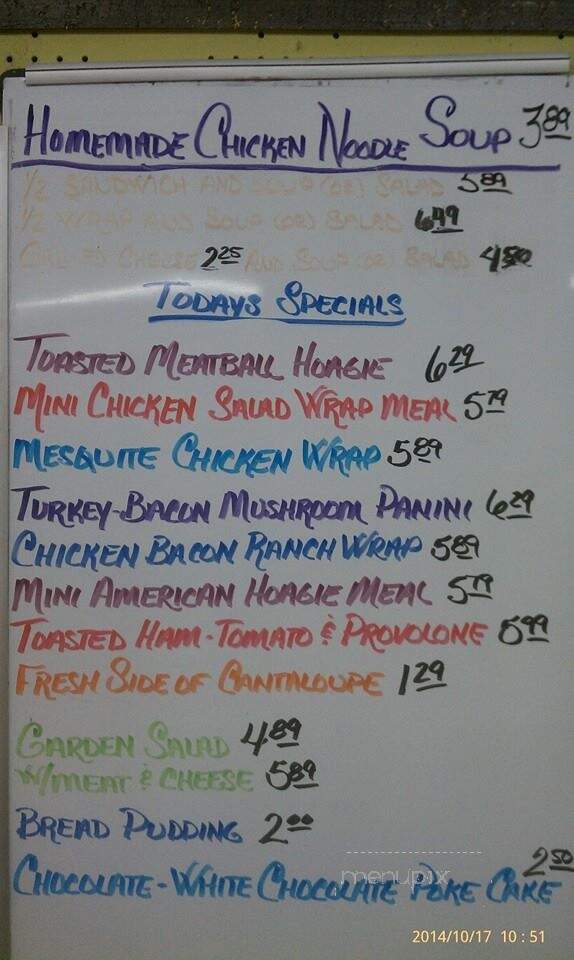 HOMEMADE CHICKEN NOODLE SOUP 3.89
1/2 SANDWICH AND SOUP (OR) SALAD 5.89
1/2 WRAP AND SOUP (OR) SALAD 6.49
GRILLED CHEESE 2.25 AND SOUP (OR) SALAD 4.50
TODAYS SPECIALS
TOASTED MEATBALL HOAGIE 6.29
MINI CHICKEN SALAD WRAP MEAL 5.79
MESQUITE CHICKEN WRAP 5.89
TURKEY-BACON MUSHROOM PANINI 6.29
CHICKEN BACON RANCH WRAP 5.89
MINI AMERICAN HOAGIE MEAL 5.79
TOASTED HAM-TOMATO & PROVOLONE 5.99
FRESH SIDE OF CANTALOUPE 1.29
GARDEN SALAD 4.89
W/MEAT & CHEESE 5.89
BREAD PUDDING 2.00
CHOCOLATE-WHITE CHOCOLATE POKE CAKE 2.50
menupix
2014/10/17 10:51